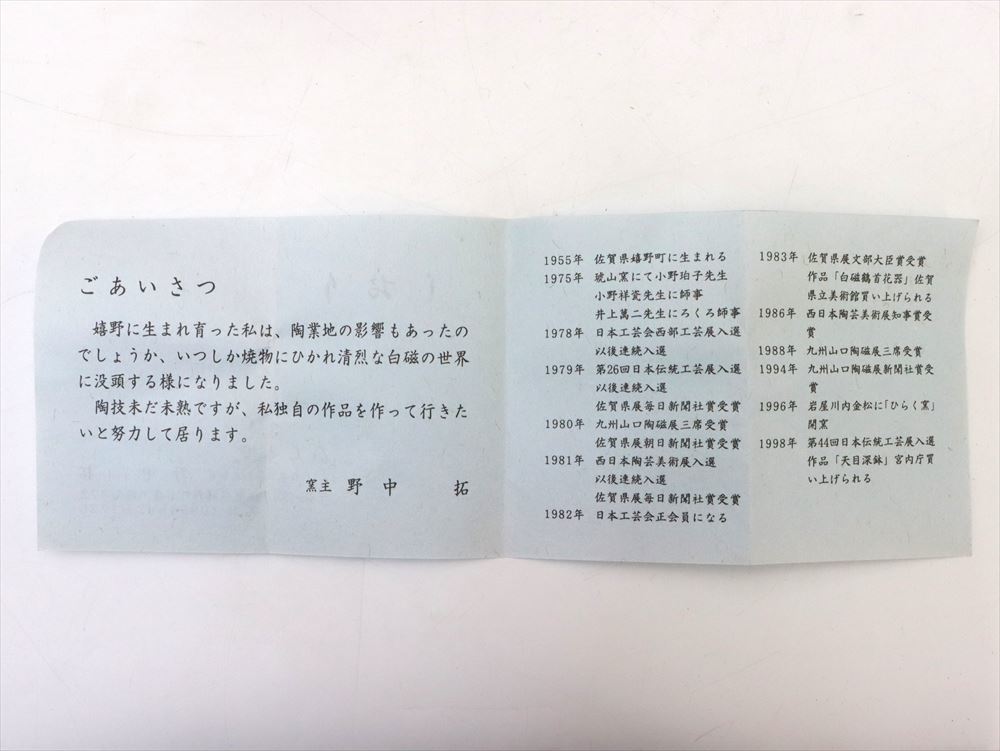 ごあいさつ
嬉野に生まれ育った私は、陶業地の影響もあったの
でしょうか、いつしか焼物にひかれ清烈な白磁の世界
に没頭する様になりました。
陶技未だ未熟ですが、私独自の作品を作って行きた
いと努力して居ります。
窯主 野中 拓
1955年 佐賀県嬉野町に生まれる
1975年 琥山窯にて小野珀子先生
小野祥瓷先生に師事
井上萬二先生にろくろ師事
1978年 日本工芸会西部工芸展入選
以後連続入選
1979年 第26回日本伝統工芸展入選
以後連続入選
佐賀県展毎日新聞社賞受賞
1980年 九州山口陶磁展三席受賞
佐賀県展朝日新聞社賞受賞
1981年 西日本陶芸美術展入選
以後連続入選
佐賀県展毎日新聞社賞受賞
1982年 日本工芸会正会員になる
1983年 佐賀県展文部大臣賞受賞
作品「白磁鶴首花器」佐賀
県立美術館買い上げられる
1986年 西日本陶芸美術展知事賞受
賞
1988年 九州山口陶磁展三席受賞
1994年 九州山口陶磁展新聞社賞受
賞
1996年 岩屋川内金松に「ひらく窯」
開窯
1998年 第44回日本伝統工芸展入選
作品「天目深鉢」宮内庁買
い上げられる